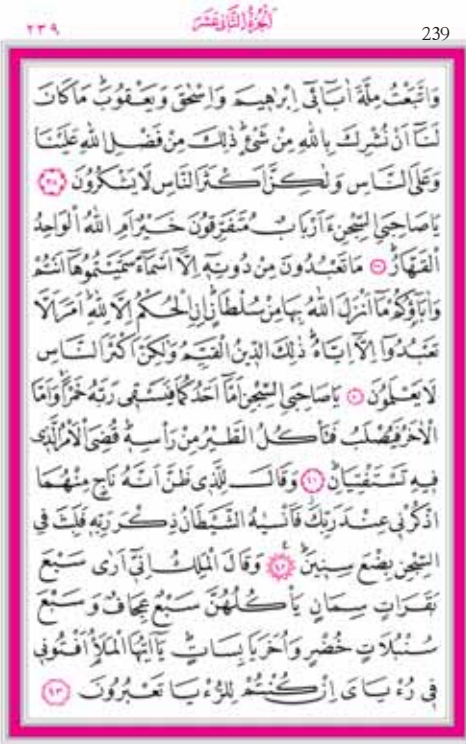 ٢٣٩
اَلْجُزْءُ الثَّانِىَ عَشَرَ
239
وَاتَّبَعْتُ مِلَّةَ اٰبَٓاءٖٓى اِبْرٰهٖيمَ وَاِسْحٰقَ وَيَعْقُوبَ مَا كَانَ
لَنَٓا اَنْ نُشْرِكَ بِاللّٰهِ مِنْ شَىْءٍ ذٰلِكَ مِنْ فَضْلِ اللّٰهِ عَلَيْنَا
وَعَلَى النَّاسِ وَلٰكِنَّ اَكْثَرَ النَّاسِ لَا يَشْكُرُونَ ﴿٣٨﴾
يَا صَاحِبَىِ السِّجْنِ ءَاَرْبَابٌ مُتَفَرِّقُونَ خَيْرٌ اَمِ اللّٰهُ الْوَاحِدُ
الْقَهَّارُ ﴿٣٩﴾ مَا تَعْبُدُونَ مِنْ دُونِهٖٓ اِلَّٓا اَسْمَٓاءً سَمَّيْتُمُوهَٓا اَنْتُمْ
وَاٰبَٓاؤُكُمْ مَٓا اَنْزَلَ اللّٰهُ بِهَا مِنْ سُلْطَانٍ اِنِ الْحُكْمُ اِلَّا لِلّٰهِ اَمَرَ اَلَّا
تَعْبُدُٓوا اِلَّٓا اِيَّاهُ ذٰلِكَ الدّٖينُ الْقَيِّمُ وَلٰكِنَّ اَكْثَرَ النَّاسِ
لَا يَعْلَمُونَ ﴿٤٠﴾ يَا صَاحِبَىِ السِّجْنِ اَمَّٓا اَحَدُكُمَا فَيَسْقٖى رَبَّهُ خَمْرًا وَاَمَّا
الْاٰخَرُ فَيُصْلَبُ فَتَاْكُلُ الطَّيْرُ مِنْ رَاْسِهٖ قُضِىَ الْاَمْرُ الَّذٖى
فٖيهِ تَسْتَفْتِيَانِ ﴿٤١﴾ وَقَالَ لِلَّذٖى ظَنَّ اَنَّهُ نَاجٍ مِنْهُمَا
اذْكُرْنٖى عِنْدَ رَبِّكَ فَاَنْسٰيهُ الشَّيْطَانُ ذِكْرَ رَبِّهٖ فَلَبِثَ فِى
السِّجْنِ بِضْعَ سِنٖينَ ﴿٤٢﴾ وَقَالَ الْمَلِكُ اِنّٖٓى اَرٰى سَبْعَ
بَقَرَاتٍ سِمَانٍ يَاْكُلُهُنَّ سَبْعٌ عِجَافٌ وَسَبْعَ
سُنْبُلَاتٍ خُضْرٍ وَاُخَرَ يَابِسَاتٍ يَٓا اَيُّهَا الْمَلَاُ اَفْتُونٖى
فٖى رُءْيَاىَ اِنْ كُنْتُمْ لِلرُّءْيَا تَعْبُرُونَ ﴿٤٣﴾